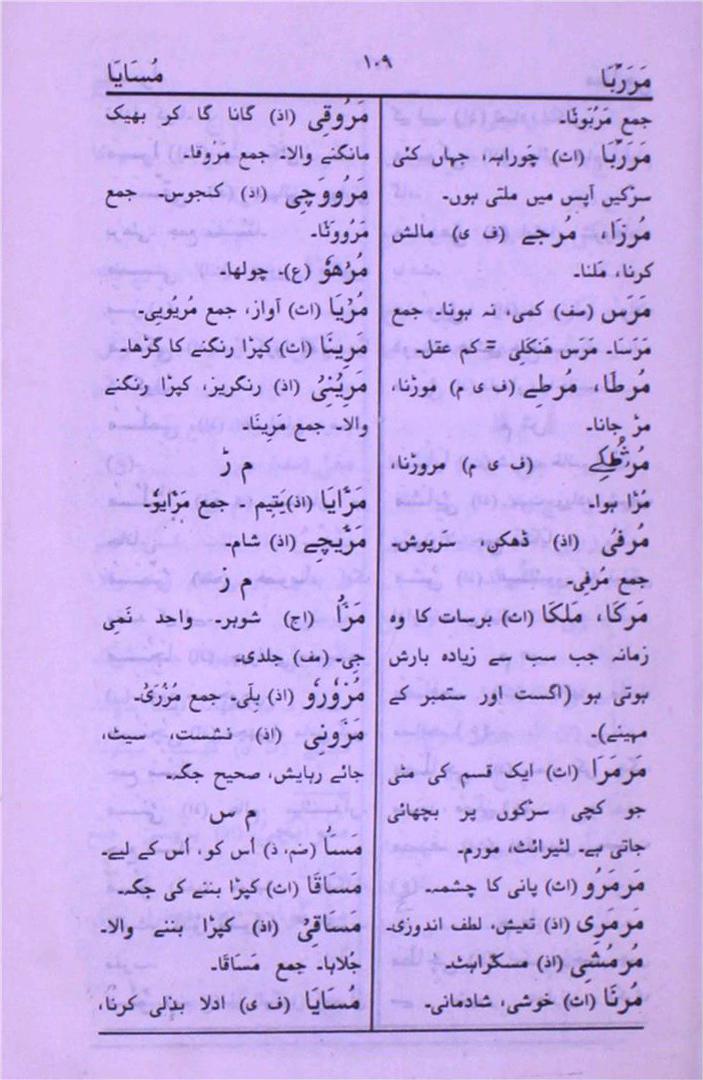 مَرَرْبَا
۱۰۹
مُسَایَا
جمع مَرْبُوتَا۔
مَرَرْبَا (اث) چَوراہہ، جہاں کئی
سڑکیں آپس میں ملتی ہوں۔
مُرزَا، مُرجے (ف ی) مالش
کرنا، مَلنا۔
مَرَس (صف) کمی، نہ ہونا۔ جمع
مَرَسَا۔ مَرَس مَنکَلِی = کم عقل۔
مُرطَا، مُرطے (ف ی م) موڑنا،
مڑ جانا۔
(ف ی م) مروڑنا،
مُڑا ہوا۔
مُرفیُ (اذ) ڈھکن، سرپوش۔
جمع مُرفِی۔
مَرکَا، مَلکَا (اث) برسات کا وہ
زمانہ جب سب سے زیادہ بارش
ہوتی ہو (اگست اور ستمبر کے
مہینے)۔
مَرمَرَا (اث) ایک قسم کی مٹی
جو کچی سڑکوں پر بچھائی
جاتی ہے۔ لٹیرائٹ، مورم۔
مَرمَرُو (اث) پانی کا چشمہ۔
مَرمَرِی (اذ) تعیش، لطف اندوزی۔
مُرمُشِی (اذ) مسکراہٹ۔
مُرنَا (اث) خوشی، شادمانی۔
مَرُوقِی (اذ) گانا گا کر بھیک
مانگنے والا۔ جمع مَرُوقَا۔
مَرُووَچِی (اذ) کنجوس۔ جمع
مَرُووَتَا۔
مُرْهُوْ (ع)۔ چولھا۔
مُرْیَا (اث) آواز، جمع مُریُویِی۔
مَرِینَا (اث) کپڑا رنگنے کا گڑھا۔
مَرِیْنیُ (اذ) رنگریز، کپڑا رنگنے
والا۔ جمع مَرِینَا۔
م ڑ
مَرَّایَا (اذ) یَتیم۔ جمع مَرَّایُو۔
مَرِّیچے (اذ) شام۔
م ز
مَزَّا (اج) شوہر۔ واحد نَمِی
جِی۔ (مف) جلدی۔
مُزْورُو (اذ) بِلّی۔ جمع مُزُرَیُ۔
مَزَونِی (اذ) نشست، سیٹ،
جائے رہایش، صحیح جگہ۔
م س
مَسَّا (ضم، ذ) اُس کو، اُس کے لیے۔
مَسَاقَا (اث) کپڑا بننے کی جگہ۔
مَساقیُ (اذ) کپڑا بننے والا۔
جُلاہا۔ جمع مَسَاقَا۔
مُسَایَا (ف ی) ادلا بدلی کرنا،